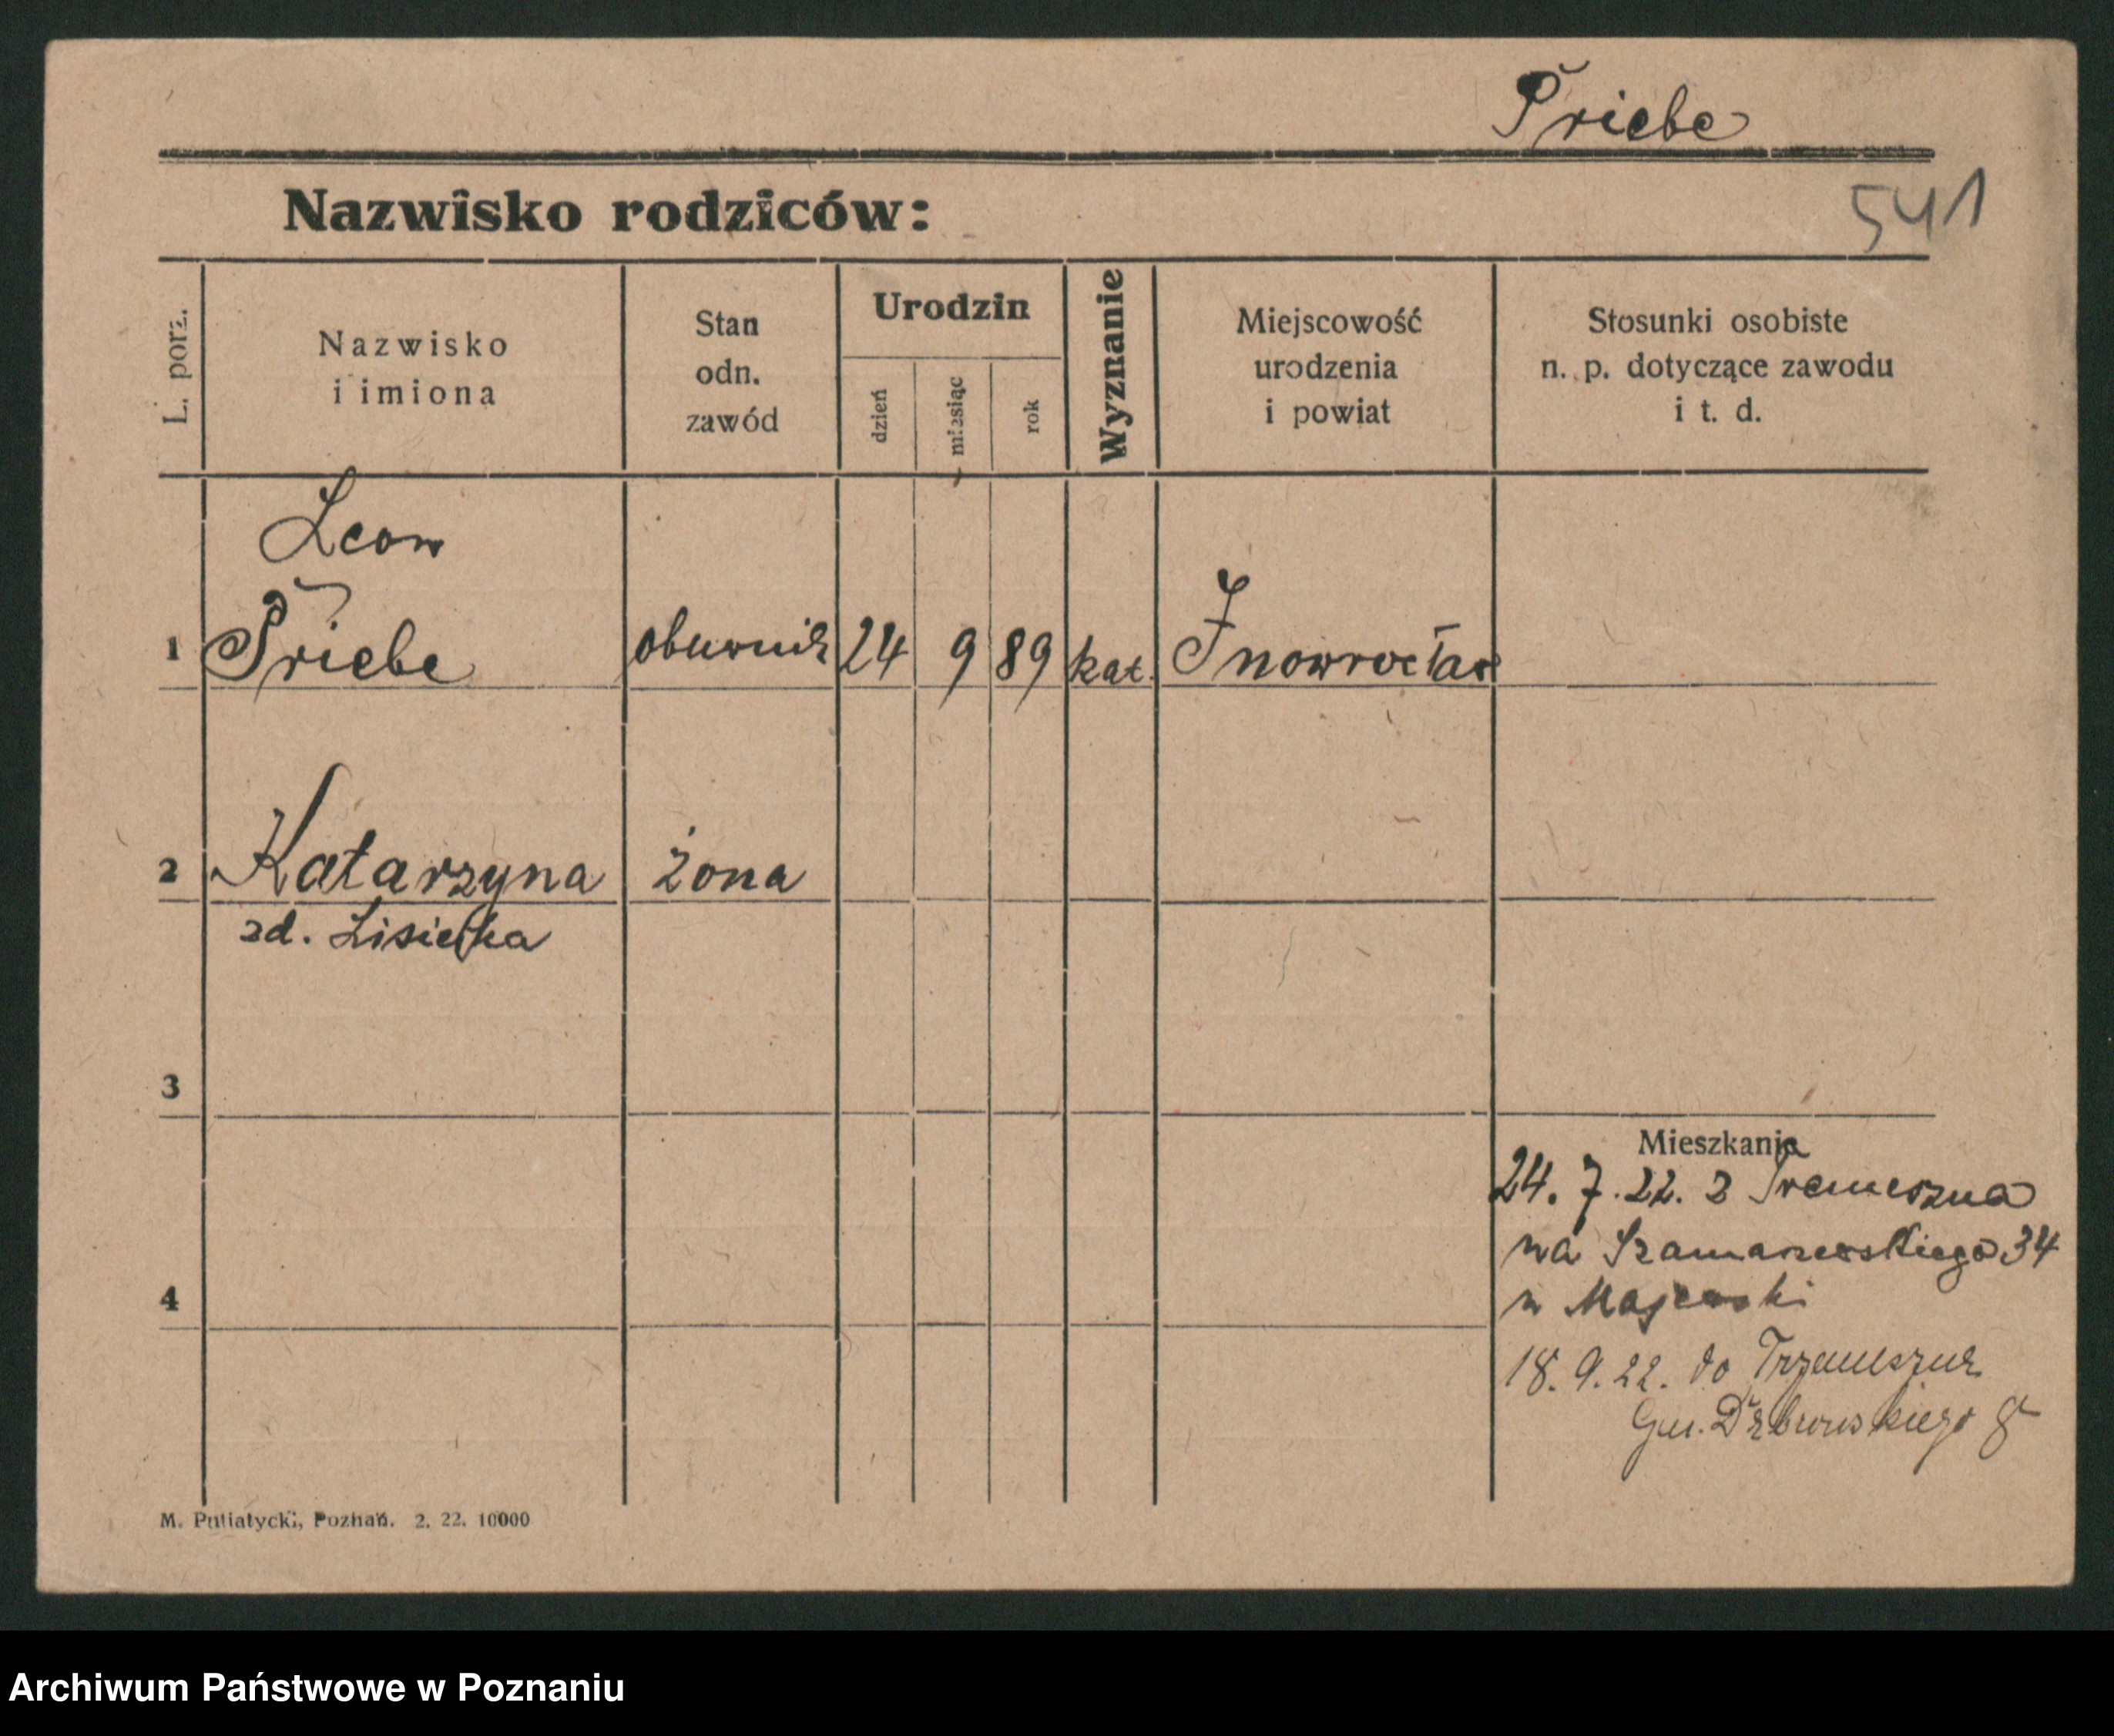 Priebe
541
Nazwisko rodziców:
L. porz.
Nazwisko
i imiona
Stan
odn.
zawód
Urodzin
dzień
miesiąc
rok
Wyznanie
Miejscowość
urodzenia
i powiat
Stosunki osobiste
n. p. dotyczące zawodu
i t. d.
Leon
1 Priebe obuwnik 24 9 89 kat. Inowrocław
2 Katarzyna żona
zd. Lisiecka
3
Mieszkania
24. 7. 22. z Tremeszna
na Szamarzewskiego 34
4
u Majewski
18. 9. 22. do Trzemeszna
Dąbrowskiego 8
M. Putiatycki, Poznań. 2. 22. 10000
Archiwum Państwowe w Poznaniu